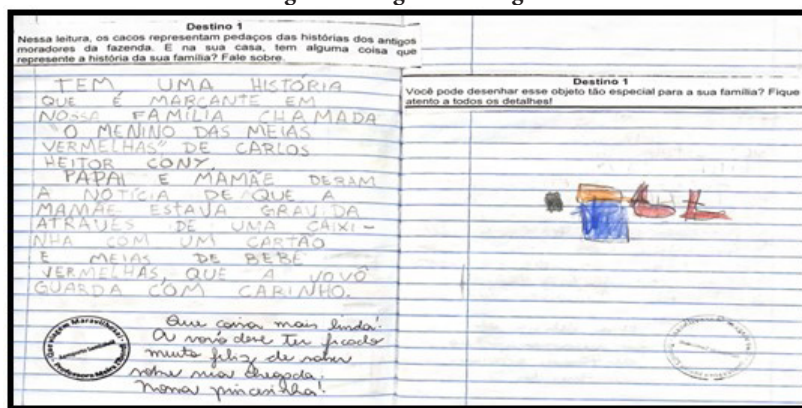 Destino 1
Nessa leitura, os cacos representam pedaços das histórias dos antigos
moradores da fazenda. E na sua casa, tem alguma coisa que
represente a história da sua família? Fale sobre.
TEM UMA HISTÓRIA
QUE É MARCANTE EM
NOSSA FAMÍLIA CHAMADA
"O MENINO DAS MEIAS
VERMELHAS" DE CARLOS
HEITOR CONY.
PAPAI E MAMÃE DERAM
A NOTÍCIA DE QUE A
MAMÃE ESTAVA GRAVIDA
ATRAVÉS DE UMA CAIXI-
NHA COM UM CARTÃO
E MEIAS DE BEBÊ
VERMELHAS, QUE A VOVÓ
GUARDA COM CARINHO.
Que coisa mais linda!
A vovó deve ter ficado
muito feliz de saber
sobre sua chegada,
nossa princesinha!
Destino 1
Você pode desenhar esse objeto tão especial para a sua família? Fique
atento a todos os detalhes!